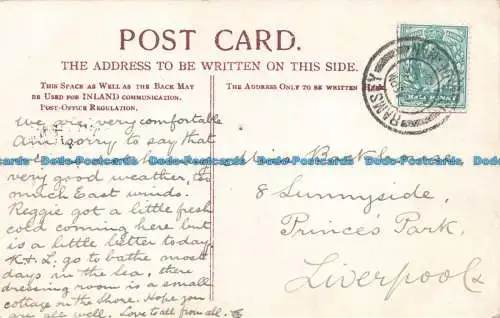 POST CARD.
THE ADDRESS TO BE WRITTEN ON THIS SIDE.
THIS SPACE AS WELL AS THE BACK MAY
BE USED FOR INLAND COMMUNICATION.
POST-OFFICE REGULATION.
THE ADDRESS ONLY TO BE WRITTEN
RAMSEY
We are very comfortable
Am sorry to say that
very good weather, to
much East wind.
Reggie got a little fresh
cold coming here but
is a little better today.
K & L. go to bathe most
days in the sea, there
dressing room is a small
cottage on the shore. Hope you
are all well. Love to all from all.
Miss
8 Sunnyside,
Prince's Park,
Liverpool
Dodo-Postcards Dodo-Postcards Dodo-Postcards Dodo-Postcards